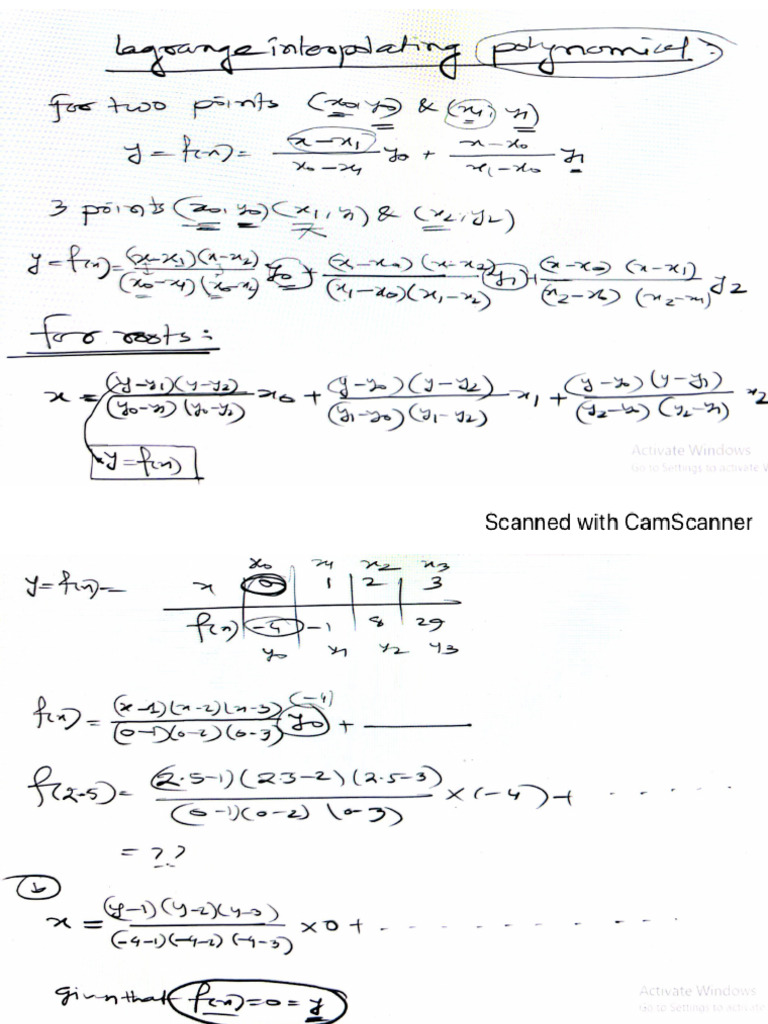 Lagrange interpolating polynomial :
For two points (x₀, y₀) & (x₁, y₁)
y = f(x) = (x - x₁)/(x₀ - x₁) y₀ + (x - x₀)/(x₁ - x₀) y₁
3 points (x₀, y₀) (x₁, y₁) & (x₂, y₂)
y = f(x) = (x-x₁)(x-x₂)/(x₀-x₁)(x₀-x₂) y₀ + (x-x₀)(x-x₂)/(x₁-x₀)(x₁-x₂) y₁ + (x-x₀)(x-x₁)/(x₂-x₀)(x₂-x₁) y₂
For roots :
x = (y-y₁)(y-y₂)/(y₀-y₁)(y₀-y₂) x₀ + (y-y₀)(y-y₂)/(y₁-y₀)(y₁-y₂) x₁ + (y-y₀)(y-y₁)/(y₂-y₀)(y₂-y₁) x₂
y = f(x)
Activate Windows
Go to Settings to activate W
Scanned with CamScanner
x₀ x₁ x₂ x₃
y = f(x) = x 0 1 2 3
f(x) -4 -1 8 29
y₀ y₁ y₂ y₃
f(x) = (x-1)(x-2)(x-3)/(0-1)(0-2)(0-3) y₀ (-4) + ———
f(2.5) = (2.5-1)(2.3-2)(2.5-3)/(0-1)(0-2)(0-3) × (-4) + . . . . . . .
= ??
b
x = (y-1)(y-2)(y-3)/(-4-1)(-4-2)(-4-3) × 0 + . . . . . . . . . . .
given that f(x) = 0 = y
Activate Windows
Go to Settings to activate